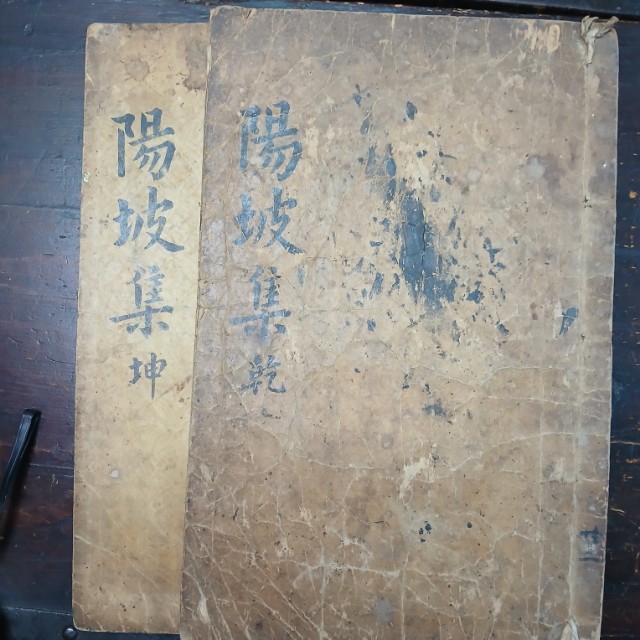 陽坡集 乾
陽坡集 坤